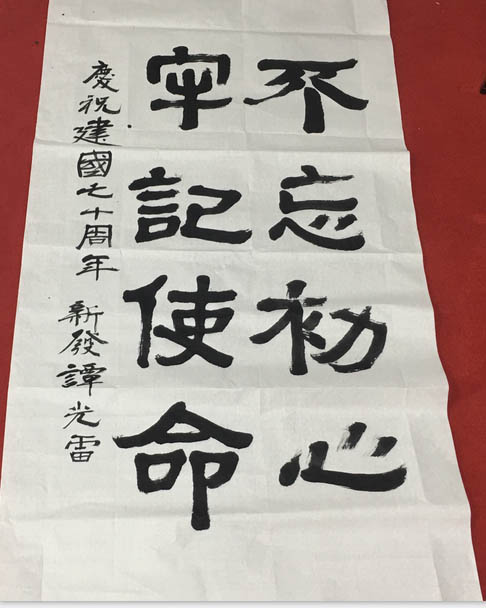 不忘初心
牢記使命
慶祝建國七十周年 新發譚光雷